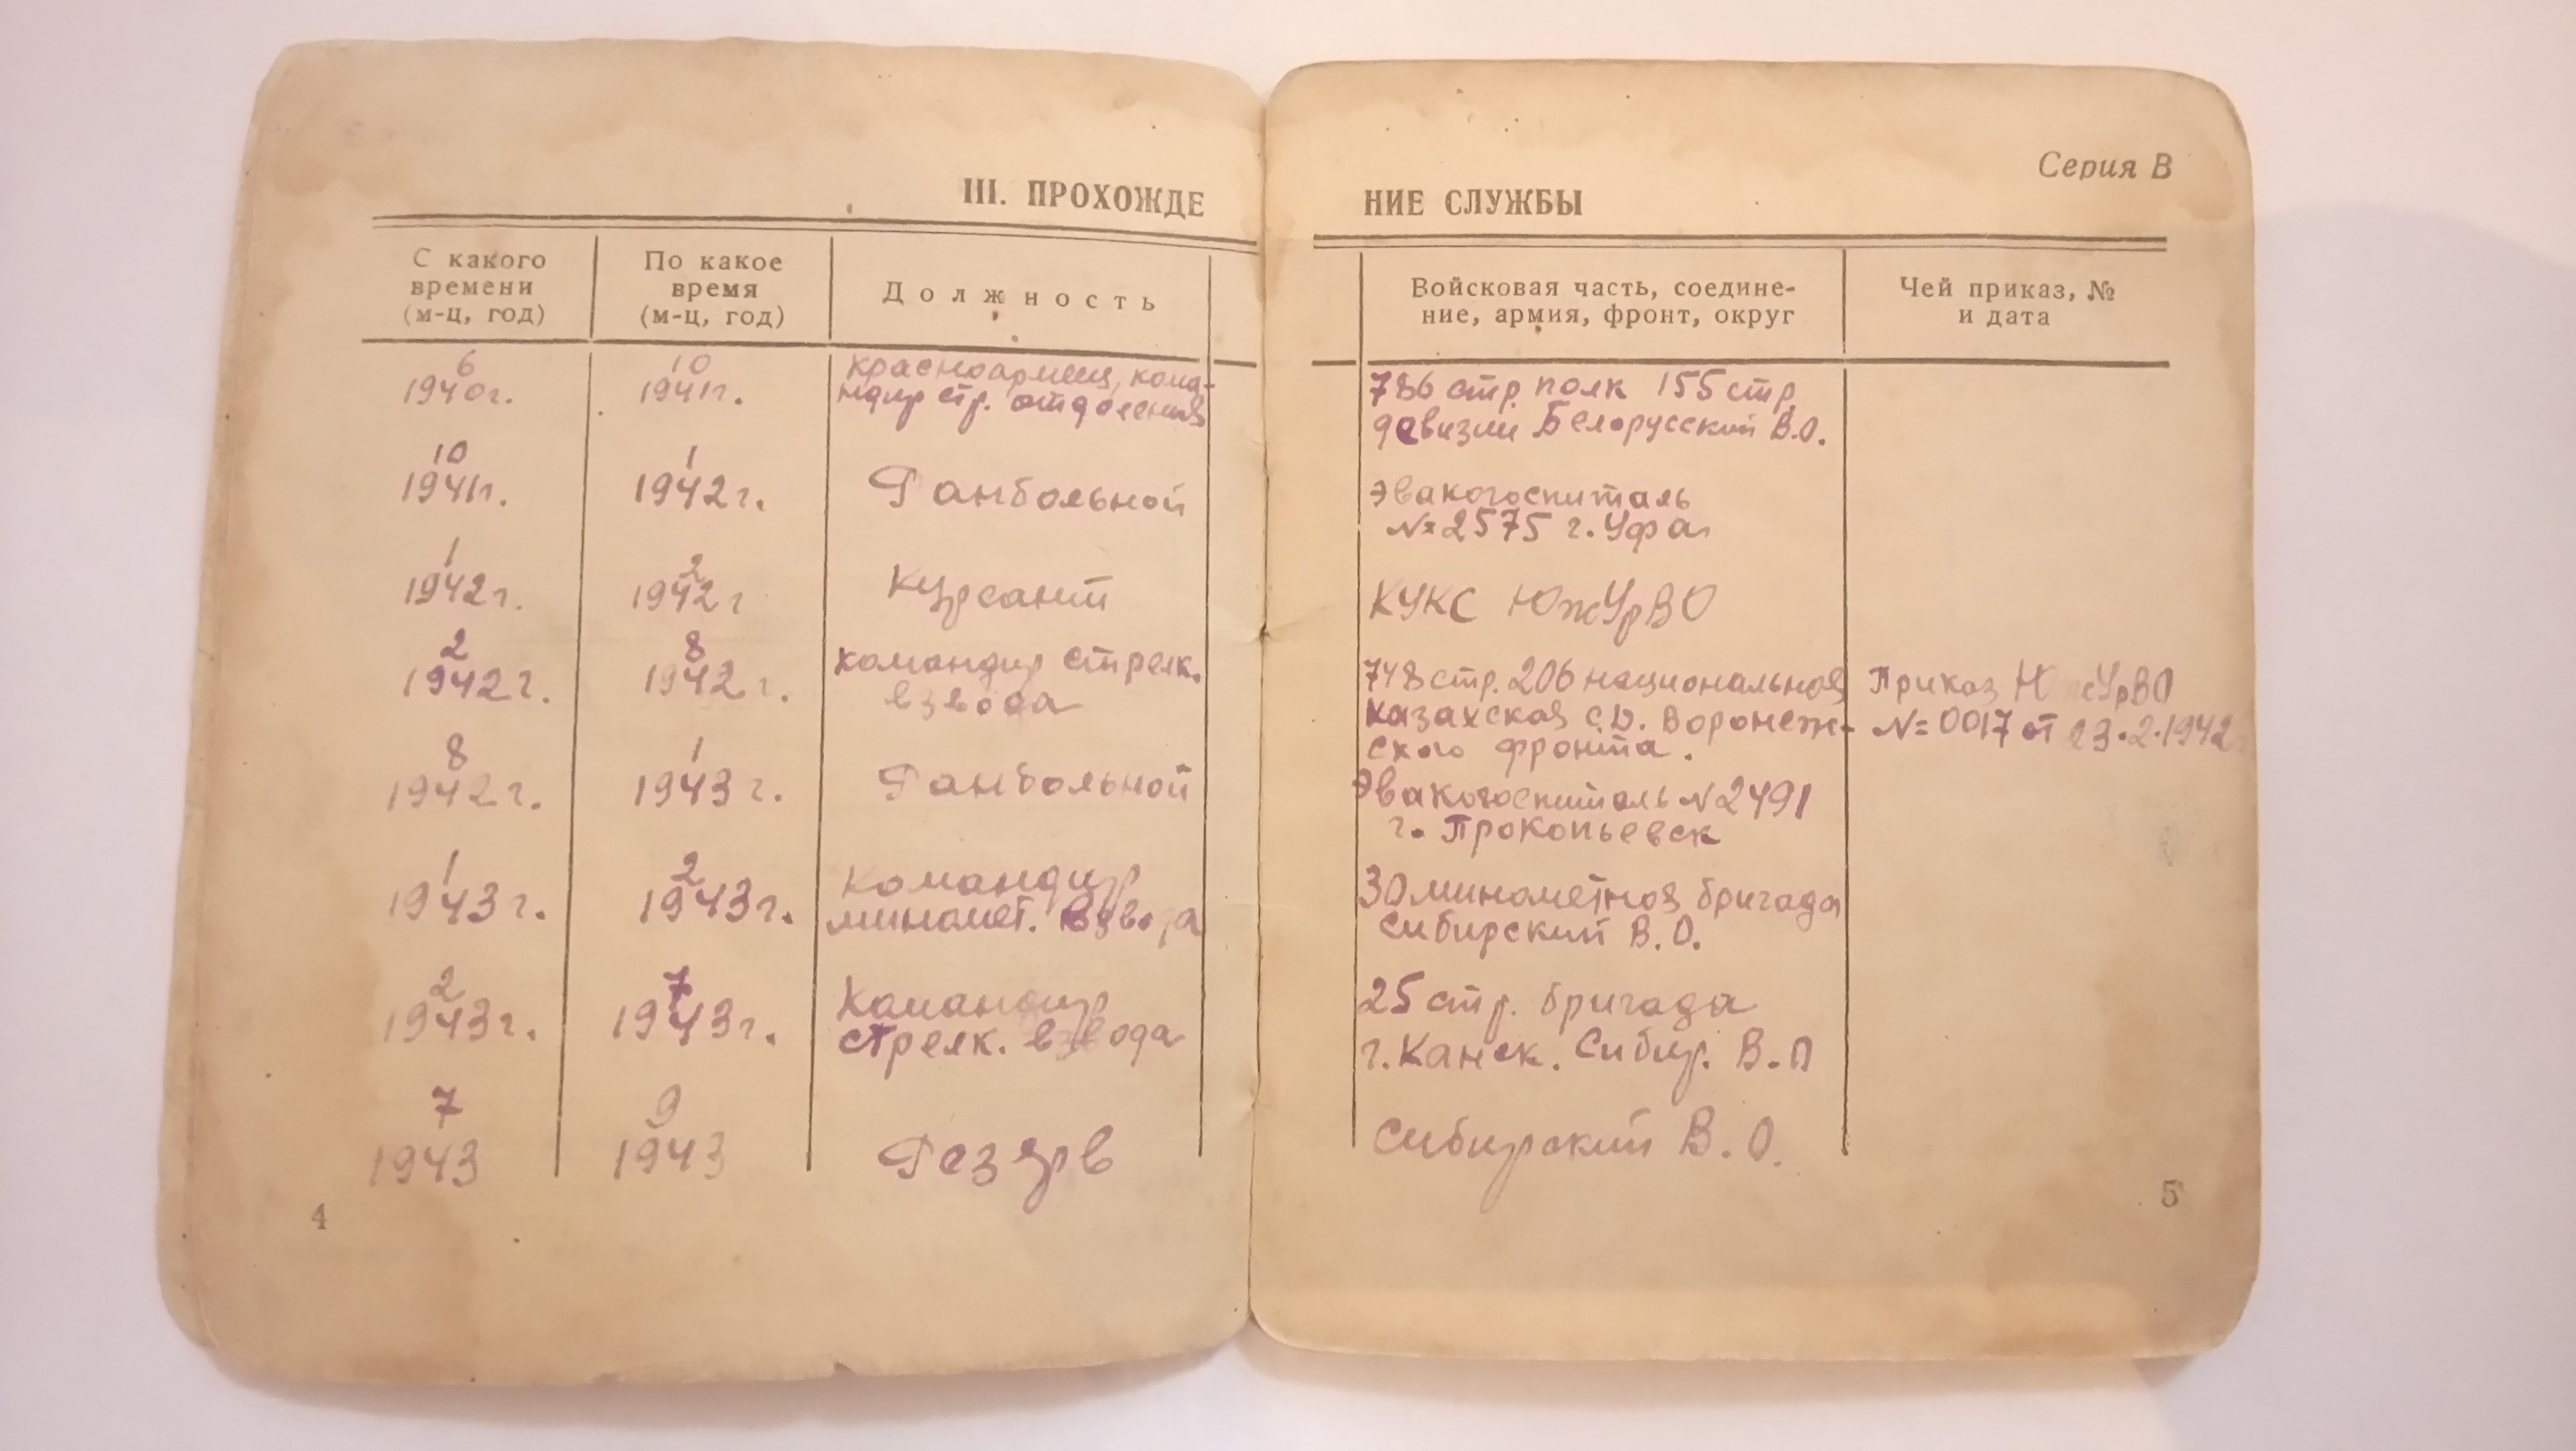 Серия В
III. ПРОХОЖДЕ
НИЕ СЛУЖБЫ
С какого
времени
(м-ц, год)
По какое
время
(м-ц, год)
Должность
Войсковая часть, соедине-
ние, армия, фронт, округ
Чей приказ, №
и дата
6
1940г.
10
1941г.
красноармеец, кома-
ндир стр. отделения
786 стр. полк 155 стр.
девизии Белорусский В.О.
10
1941г.
1
1942г.
Ранбольной
Эвакогоспиталь
№ 2575 г. Уфа
1
1942г.
2
1942г
Курсант
КУКС ЮжУрВО
2
1942г.
8
1942г.
командир стрелк.
взвода
748 стр. 206 национальная
казахская с.д. Воронеж-
ского фронта.
Приказ ЮжУрВО
№ 0017 от 23.2.1942
8
1942г.
1
1943г.
Ранбольной
Эвакогоспиталь № 2491
г. Прокопьевск
1
1943г.
2
1943г.
Командир
миномет. взвода
30 минометная бригада
Сибирский В.О.
2
1943г.
7
1943г.
Командир
стрелк. взвода
25 стр. бригада
г. Канск. Сибир. В.О
7
1943
9
1943
Резерв
Сибирский В.О.
4
5